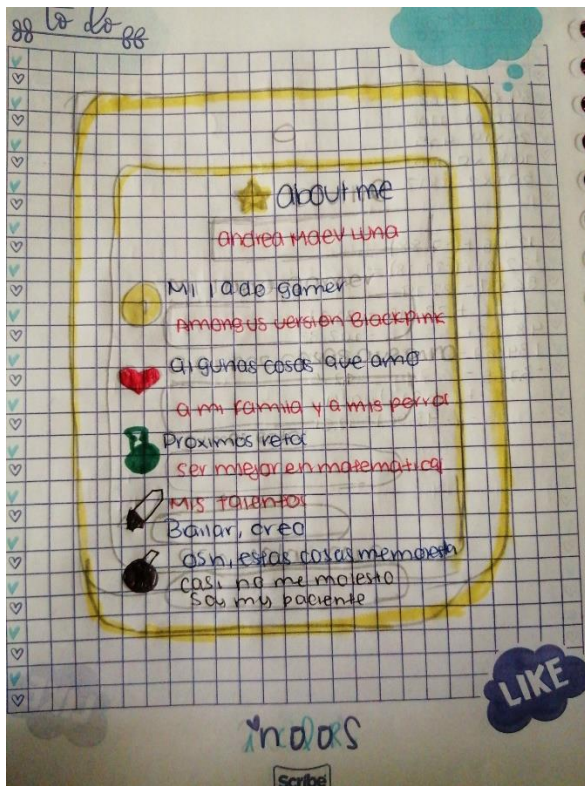 to do
about me
andrea Maev Luna
Mi lado gamer
Among us version Blackpink
algunas cosas que amo
a mi familia y a mis perros
Proximos retos
ser mejor en matematicas
Mis talentos
Bailar, creo
osh, estas cosas me molesta
casi no me molesto
soy muy paciente
LIKE
Scribe